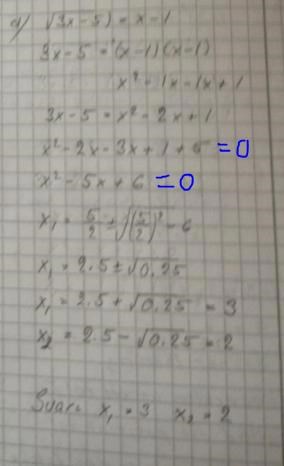 a) √(3x-5) = x-1
3x-5 = (x-1)(x-1)
x² - 1x - 1x + 1
3x-5 = x² - 2x + 1
x² - 2x - 3x + 1 + 5 = 0
x² - 5x + 6 = 0
x₁ = 5/2 ± √(5/2)² - 6
x₁ = 2.5 ± √0,25
x₁ = 2.5 + √0,25 = 3
x₂ = 2.5 - √0,25 = 2
Svar: x₁ = 3 x₂ = 2